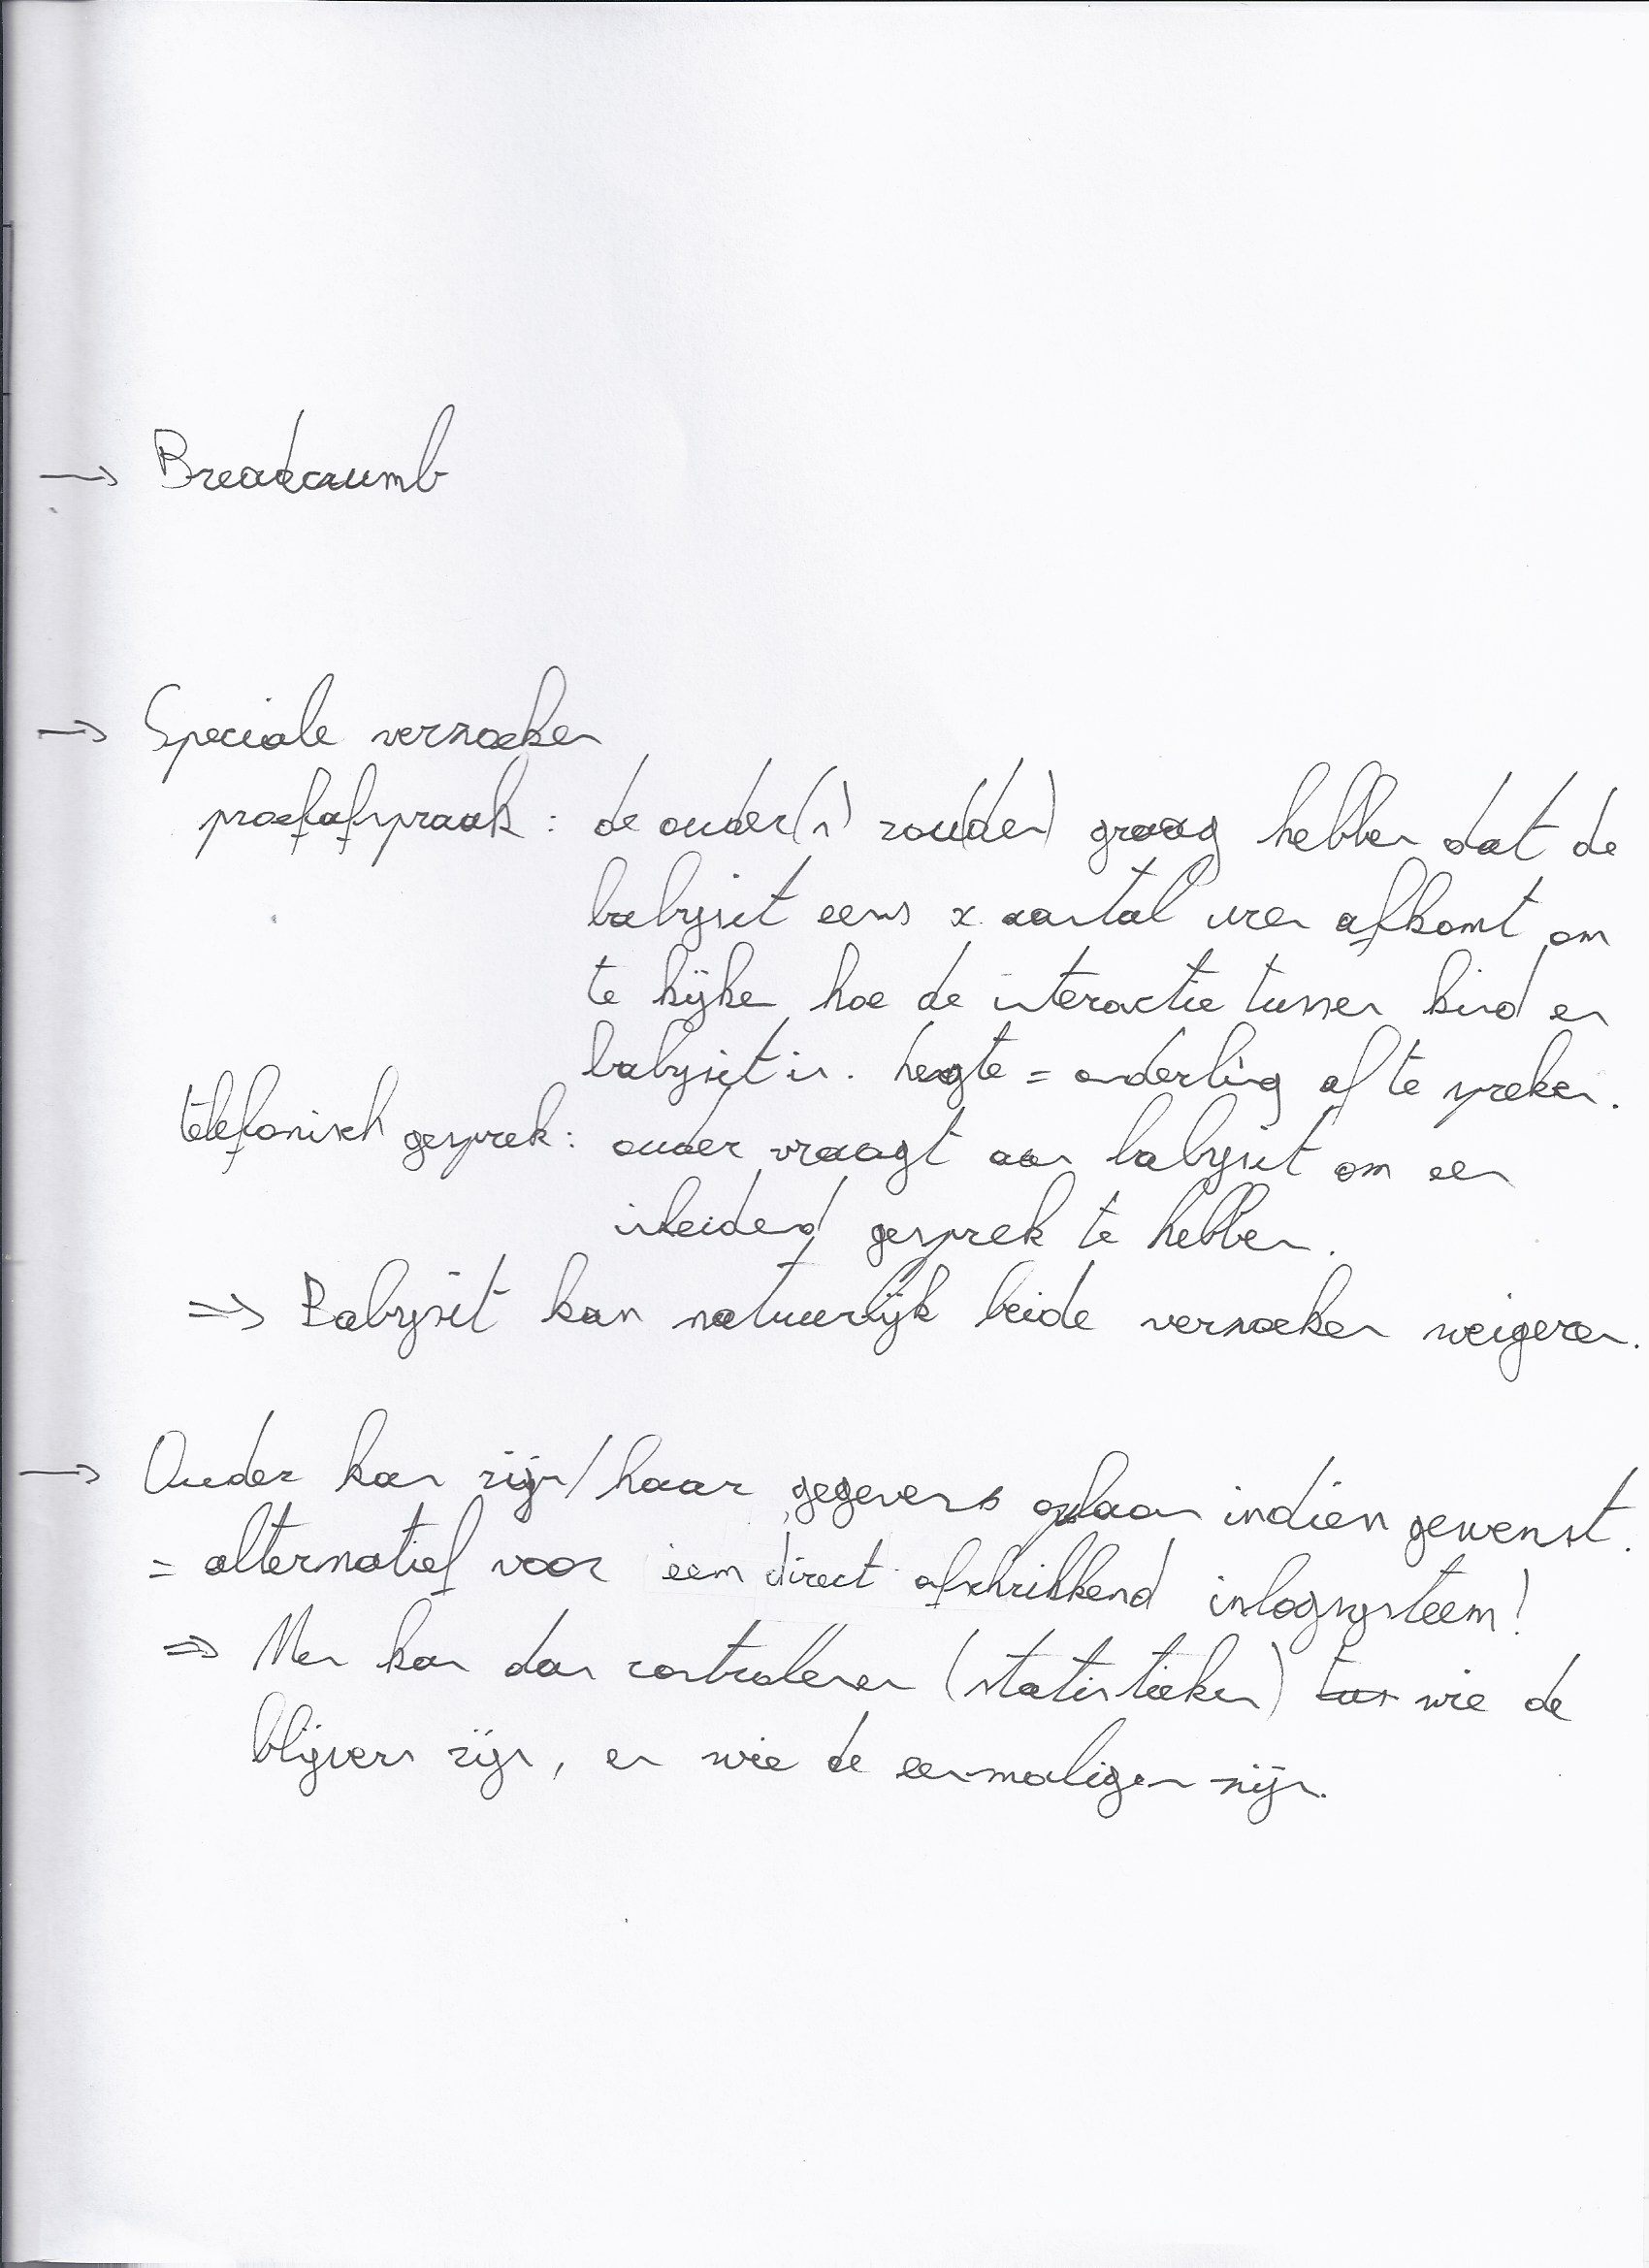 → Breadcrumb
→ Speciale verzoeken
proefafspraak : de ouder(s) zou(den) graag hebben dat de
babysit eens x aantal uren afkomt om
te kijken hoe de interactie tussen kind en
babysit is. = onderling af te spreken.
telefonisch gesprek : ouder vraagt aan babysit om een
inleidend gesprek te hebben.
=> Babysit kan natuurlijk beide verzoeken weigeren.
→ Ouder kan zijn/haar gegevens opslaan indien gewenst.
= alternatief voor een direct afschrikkend inlogsysteem!
=> Men kan dan controleren (statistieken) wie de
blijvers zijn, en wie de eenmaligen zijn.